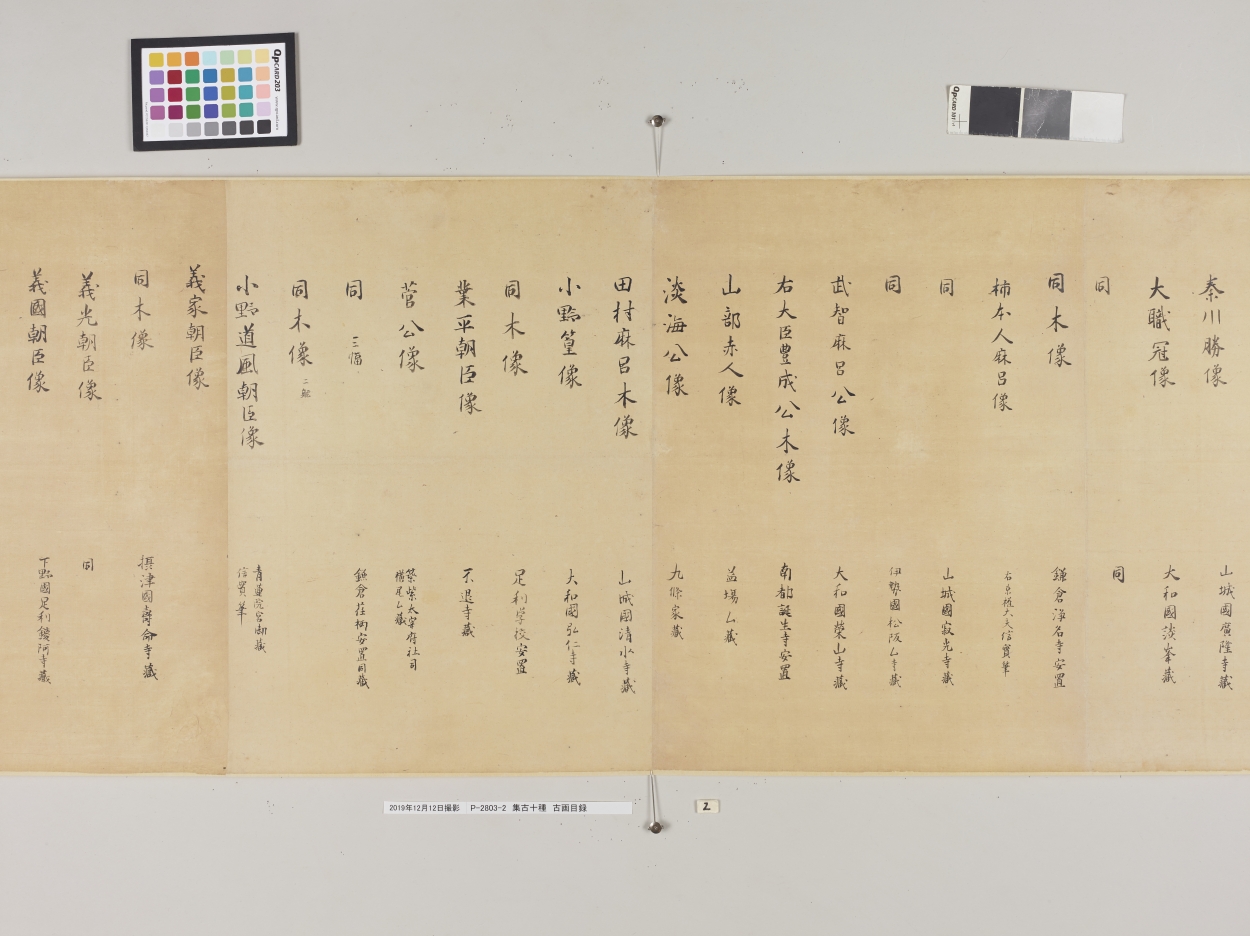 秦川勝像
山城國廣隆寺藏
大職冠像
大和國談峯藏
同
同
同木像
鎌倉浄名寺安置
柿本人麻呂像
右京權大夫信實筆
同
山城國寂光寺藏
同
伊勢國松阪ム寺藏
武智麻呂公像
大和國榮山寺藏
右大臣豊成公木像
南都誕生寺安置
山部赤人像
益場ム藏
淡海公像
九條家藏
田村麻呂木像
山城國清水寺藏
小野篁像
大和國弘仁寺藏
同木像
足利学校安置
業平朝臣像
不退寺藏
菅公像
筑紫太宰府社司
横尾ム藏
同 三幅
鎌倉荏柄安置同藏
同木像
小野道風朝臣像
青蓮院宮御藏
信實筆
義家朝臣像
同木像
摂津國壽命寺藏
義光朝臣像
同
義國朝臣像
下野國足利鑁阿寺藏
QPCARD 203
QPCARD 101
2019年12月12日撮影 P-2803-2 集古十種 古画目録
2